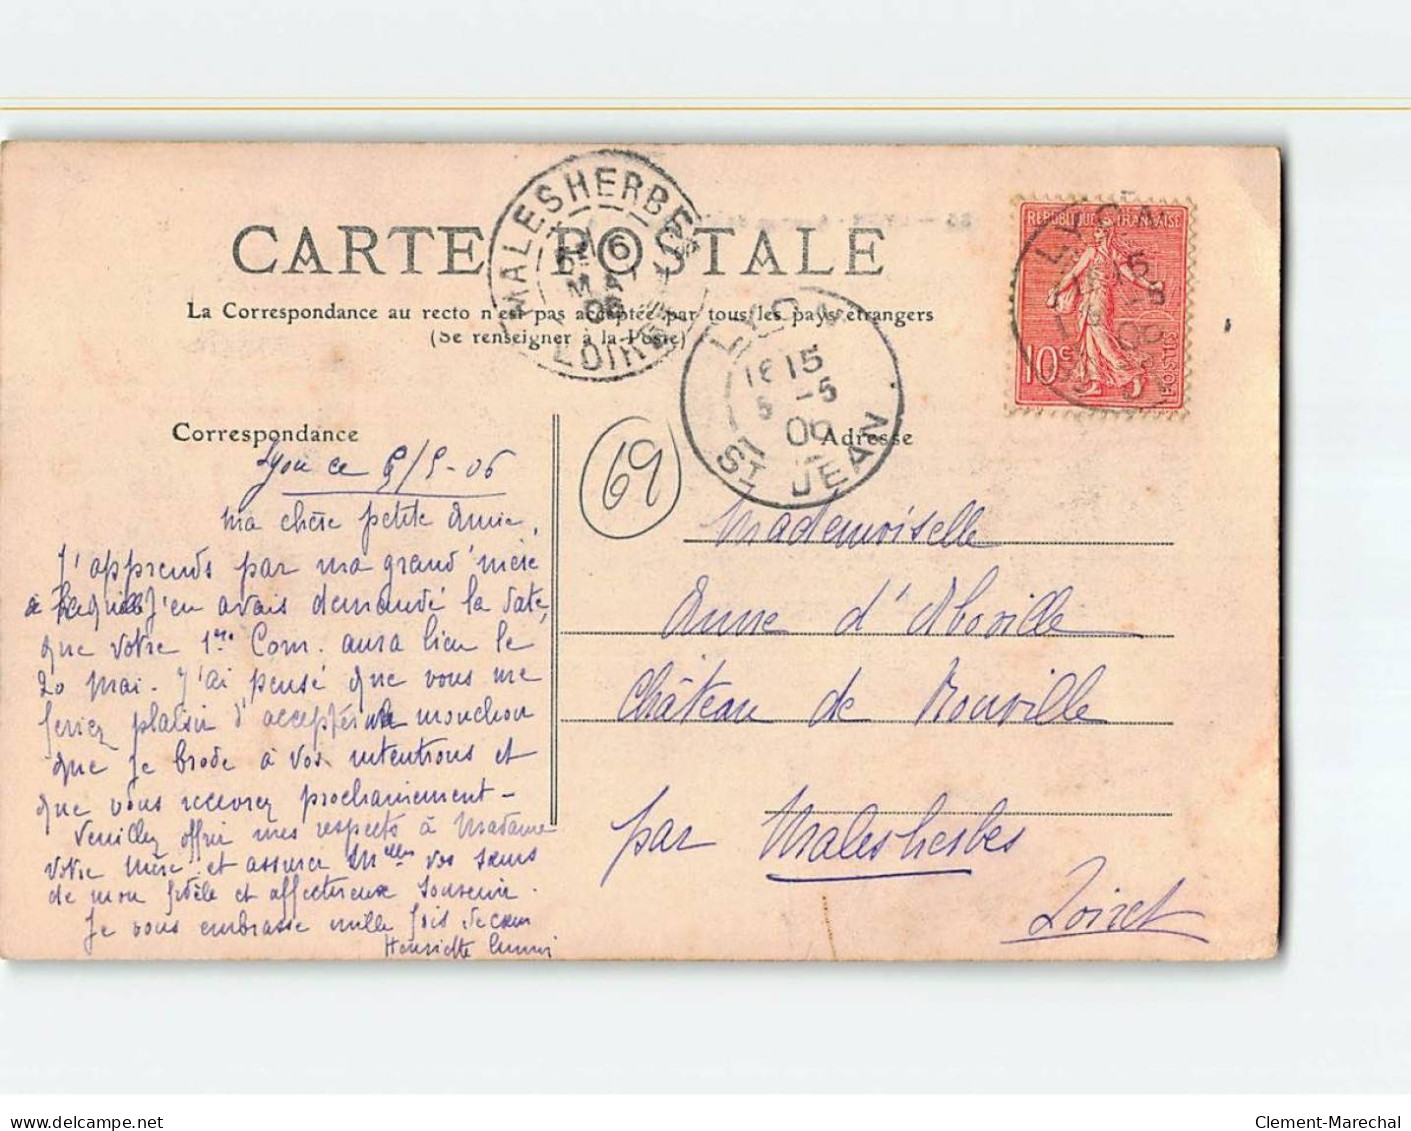 MALESHERBES
6
MAI
06
LOIRET
CARTE POSTALE
La Correspondance au recto n'est pas acceptée par tous les pays étrangers
(Se renseigner à la Poste)
REPUBLIQUE FRANÇAISE
10c
POSTES
LYON
15
-5
06
LYON
16 15
5 -5
06
ST JEAN
Correspondance
Adresse
69
Lyon ce 5/5-06
Ma chère petite Anne,
J'apprends par ma grand'mère
à laquelle j'en avais demandé la date,
que votre 1re Com. aura lieu le
20 Mai. J'ai pensé que vous me
feriez plaisir d'accepter le manchon
que je brode à vos intentions et
que vous recevrez prochainement -
Veuillez offrir mes respects à Madame
votre Mère et assurer Melles vos sœurs
de mon fidèle et affectueux souvenir.
Je vous embrasse mille fois de cœur
Henriette
Mademoiselle
Anne d'Aboville
Château de Rouville
par Malesherbes
Loiret
www.delcampe.net
Clement-Marechal